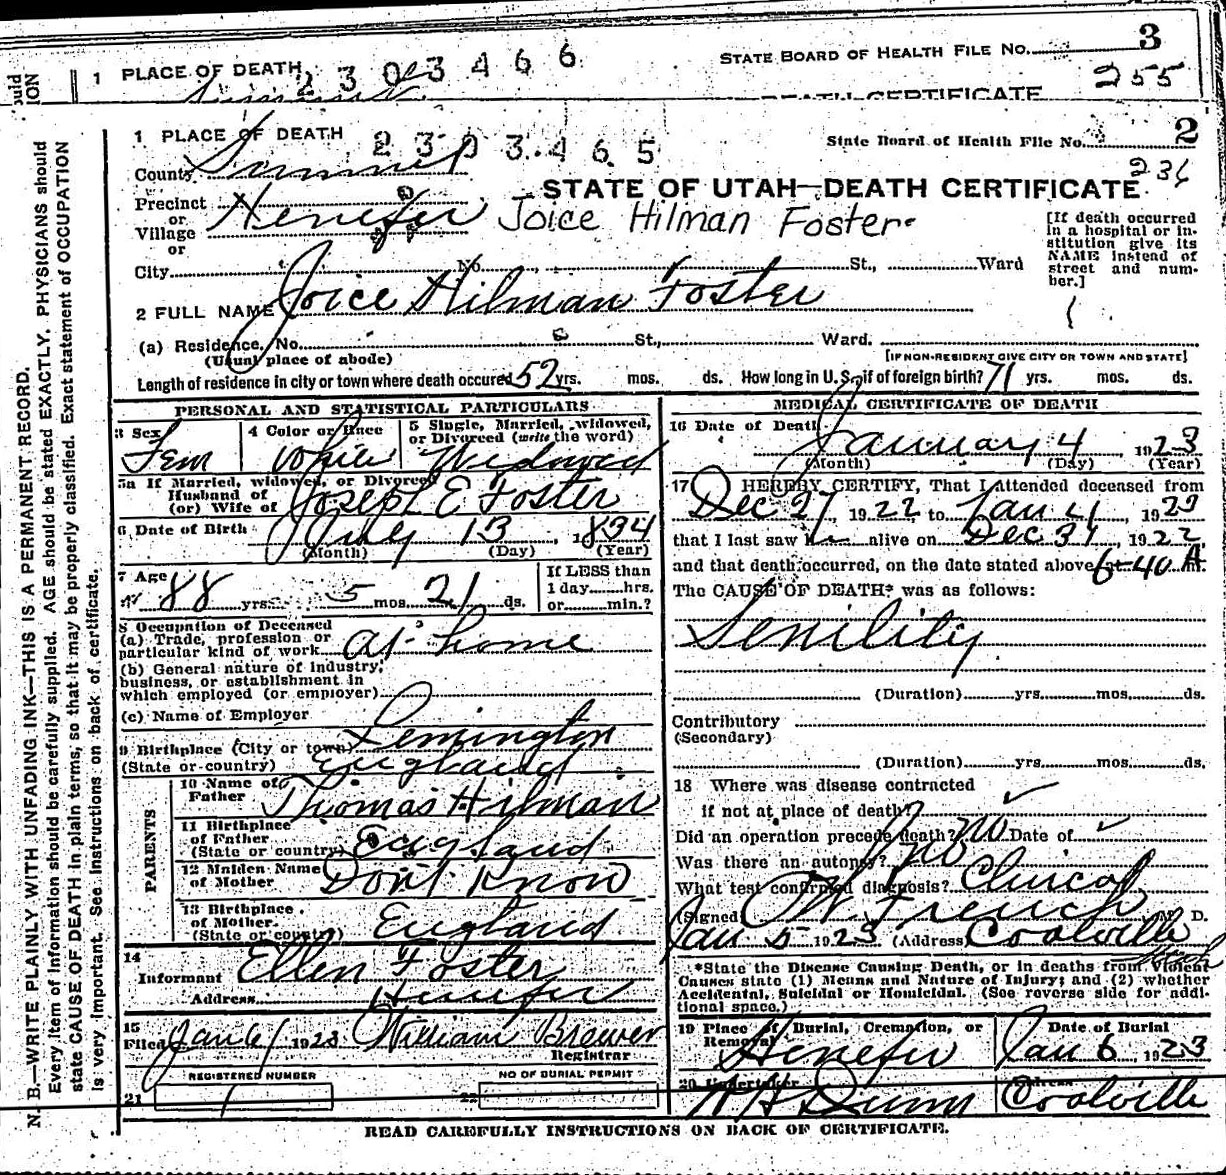 1 PLACE OF DEATH 2303466 STATE BOARD OF HEALTH FILE NO. 3
255
DEATH CERTIFICATE
1 PLACE OF DEATH 2303465 State Board of Health File No. 2
236
County Summit
STATE OF UTAH—DEATH CERTIFICATE
Precinct X
or
Village Henefer Joice Hilman Foster.
or
[If death occurred
in a hospital or in-
stitution give its
NAME instead of
street and num-
ber.]
City No. St., Ward
2 FULL NAME Joice Hilman Foster
(a) Residence, No. St., Ward.
(Usual place of abode) [IF NON-RESIDENT GIVE CITY OR TOWN AND STATE]
Length of residence in city or town where death occured 52 yrs. mos. ds. How long in U. S. if of foreign birth? 71 yrs. mos. ds.
PERSONAL AND STATISTICAL PARTICULARS
3 Sex 4 Color or Race 5 Single, Married, widowed,
or Divorced (write the word)
Fem White Widowed
5a If Married, widowed, or Divorced
Husband of
(or) Wife of Joseph E Foster
6 Date of Birth July 13, 1834
(Month) (Day) (Year)
7 Age 88 yrs. 5 mos. 21 ds.
If LESS than
1 day hrs.
or min.?
8 Occupation of Deceased
(a) Trade, profession or
particular kind of work at home
(b) General nature of industry,
business, or establishment in
which employed (or employer)
(c) Name of Employer
9 Birthplace (City or town) Lemington
(State or country) England
PARENTS
10 Name of
Father Thomas Hilman
11 Birthplace
of Father
(State or country) England
12 Maiden Name
of Mother Don't Know
13 Birthplace
of Mother.
(State or country) England
14
Informant Ellen Foster
Address Henefer
15
Filed Jan 6/ 1923 William Brewer
Registrar
REGISTERED NUMBER NO OF BURIAL PERMIT
21 1 22
MEDICAL CERTIFICATE OF DEATH
16 Date of Death
January 4 1923
(Month) (Day) (Year)
17 I HEREBY CERTIFY, That I attended deceased from
Dec 27, 1922 to Jan 4, 1923
that I last saw h alive on Dec 31, 1922,
and that death occurred, on the date stated above 6-40 A M.
The CAUSE OF DEATH* was as follows:
Senility
(Duration) yrs. mos. ds.
Contributory
(Secondary)
(Duration) yrs. mos. ds.
18 Where was disease contracted
if not at place of death?
Did an operation precede death? no Date of
Was there an autopsy? no
What test confirmed diagnosis? Clinical
(Signed) French M. D.
Jan 5 1923 (Address) Coalville
Utah
*State the Disease Causing Death, or in deaths from Violent
Causes state (1) Means and Nature of Injury; and (2) whether
Accidental, Suicidal or Homicidal. (See reverse side for addi-
tional space.)
19 Place of Burial, Cremation, or
Removal Henefer
Date of Burial
Jan 6, 1923
20 Undertaker Address
Dunn Coalville
READ CAREFULLY INSTRUCTIONS ON BACK OF CERTIFICATE.
N. B.—WRITE PLAINLY WITH UNFADING INK—THIS IS A PERMANENT RECORD.
Every item of Information should be carefully supplied. AGE should be stated EXACTLY. PHYSICIANS should
state CAUSE OF DEATH in plain terms, so that it may be properly classified. Exact statement of OCCUPATION
is very Important. See instructions on back of certificate.